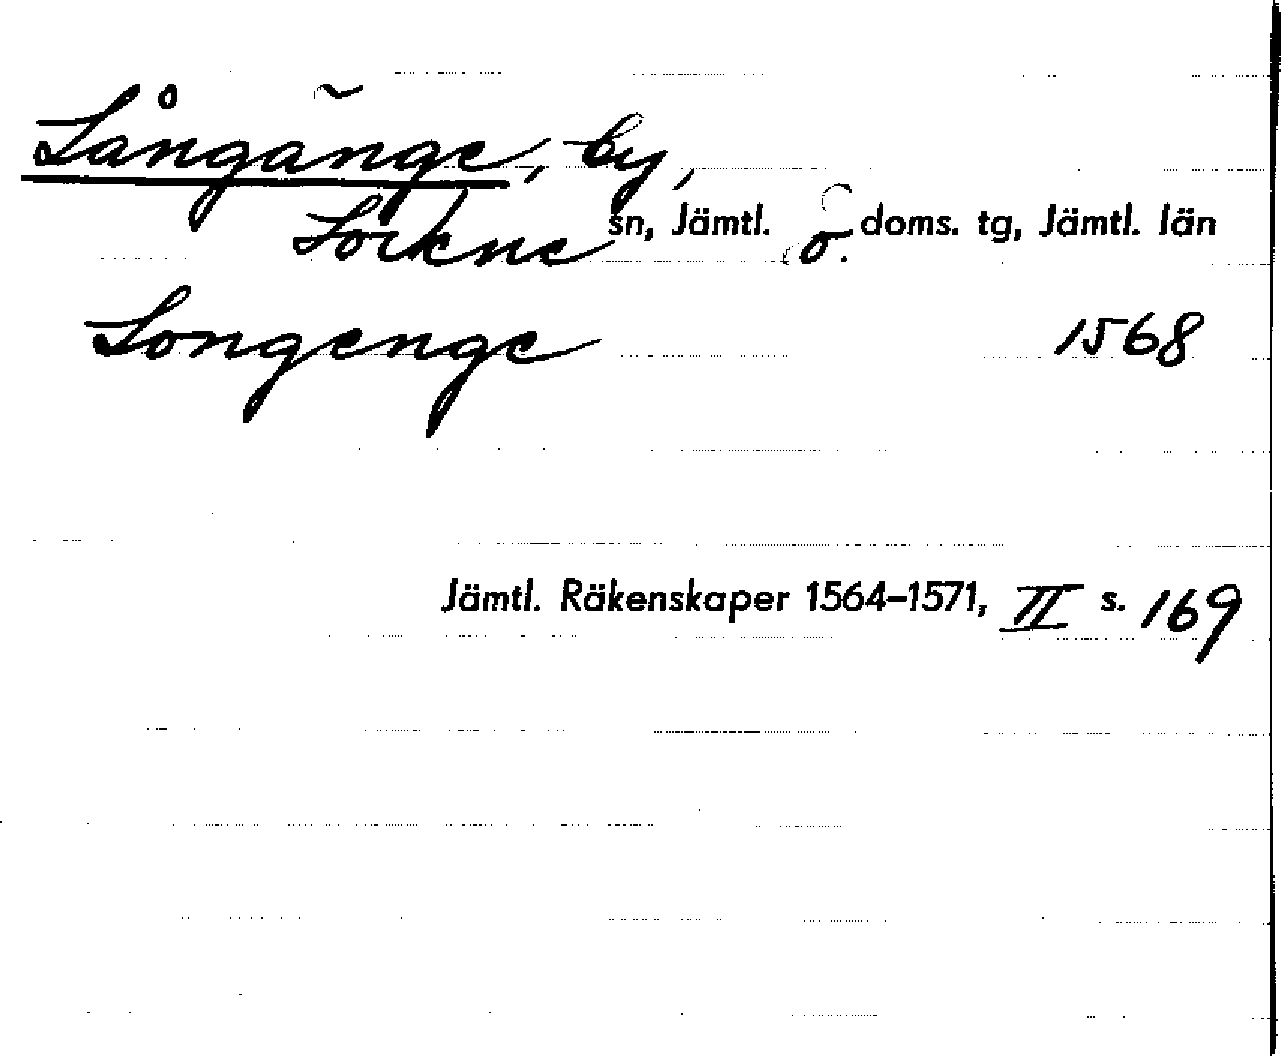 Långänge, by,
Lockne sn, Jämtl. ö. doms. tg, Jämtl. län
Longenge 1568
Jämtl. Räkenskaper 1564–1571, II s. 169